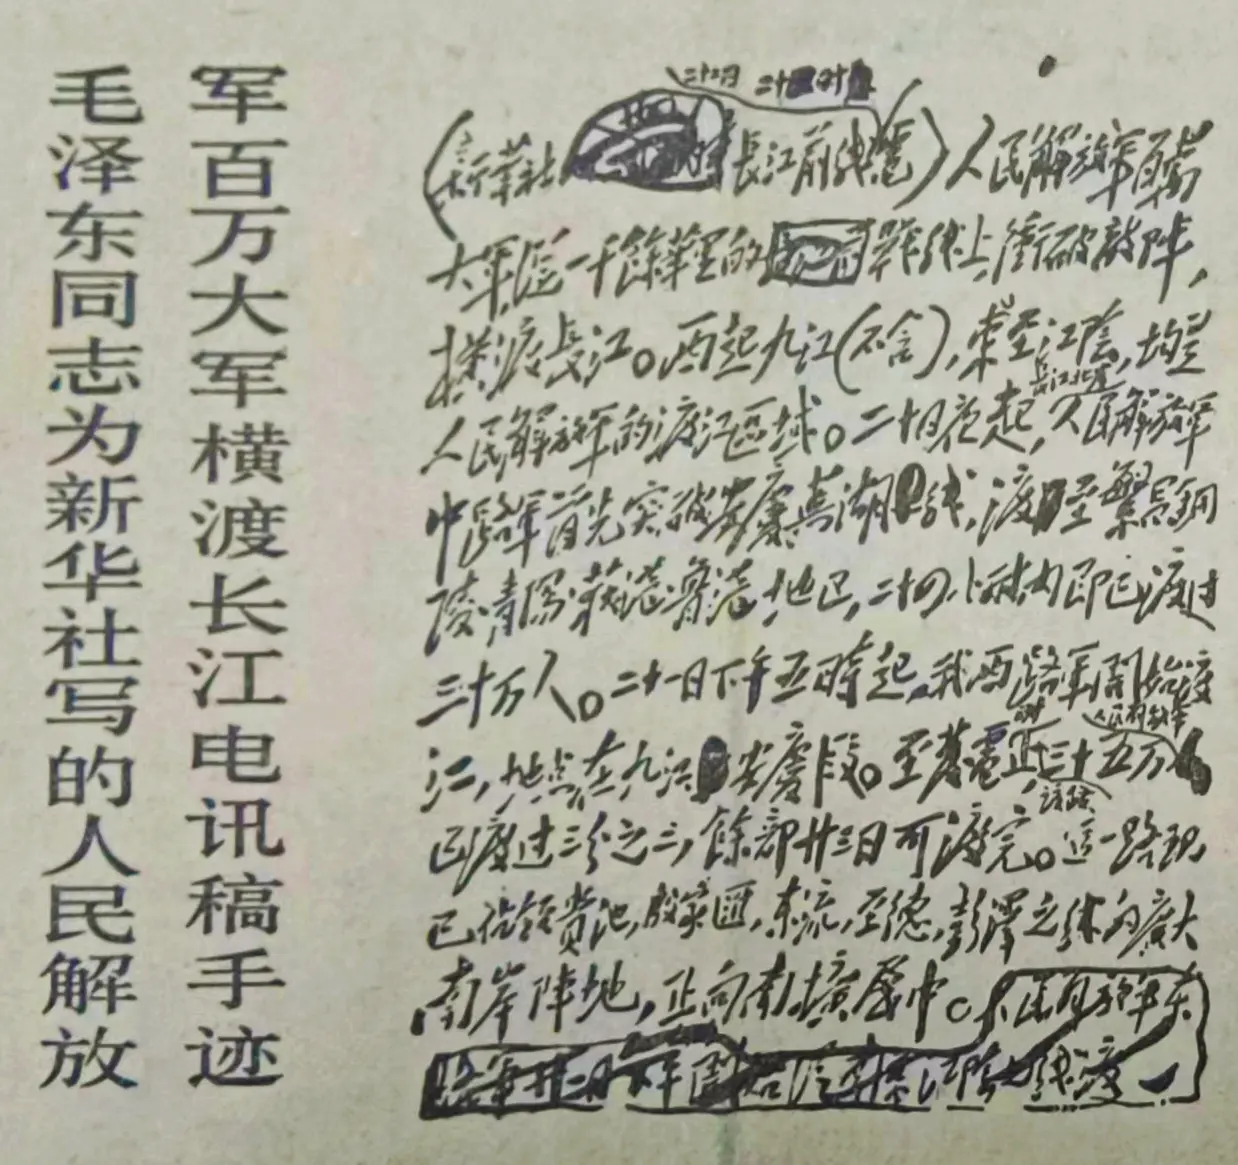 毛泽东同志为新华社写的人民解放
军百万大军横渡长江电讯稿手迹
二十二日 二十 时
（新華社 長江前线電）人民解放军百萬
大军，從一千餘華里的 戰线上，衝破敵阵，
横渡長江。西起九江（不含），東至江陰，均是
長江北岸
人民解放军的渡江區域。二十日夜起，人民解放军
中路军首先突破安慶蕪湖线，渡至繁昌銅
陵青陽荻港魯港地区，二十四小时内即已渡过
三十万人。二十一日下午五時起，我西路军開始渡
人民解放军
江，地点在九江安慶段。至發電止，三十五万
该路
已渡过三分之二，餘部廿三日可渡完。这一路现
已佔领貴池，殷家匯，東流，至德，彭澤之线的廣大
南岸阵地，正向南擴展中。人民解放军东